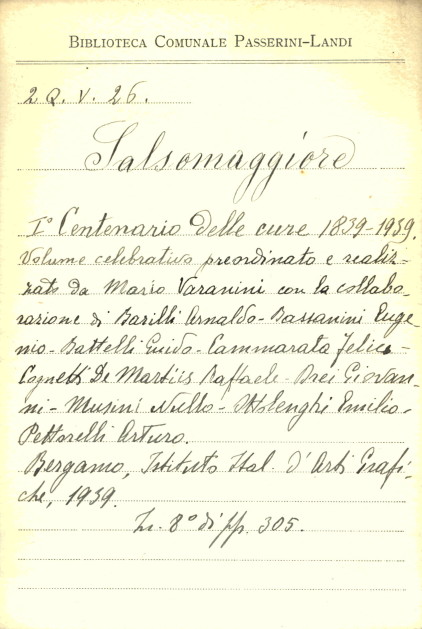 BIBLIOTECA COMUNALE PASSERINI-LANDI
2 Q. V. 26.
Salsomaggiore
I° Centenario delle cure 1839-1939.
Volume celebrativo preordinato e realiz-
zato da Mario Varanini con la collabo-
razione di Barilli Arnaldo - Bassanini Euge
nio - Battelli Guido - Cammarata Felice -
Cognetti De Martiis Raffaele - Drei Giovan-
ni - Musini Nullo - Ottolenghi Emilio -
Pettorelli Arturo.
Bergamo, Istituto Ital. d'Arti Grafi-
che, 1939.
In. 8° di pp. 305.